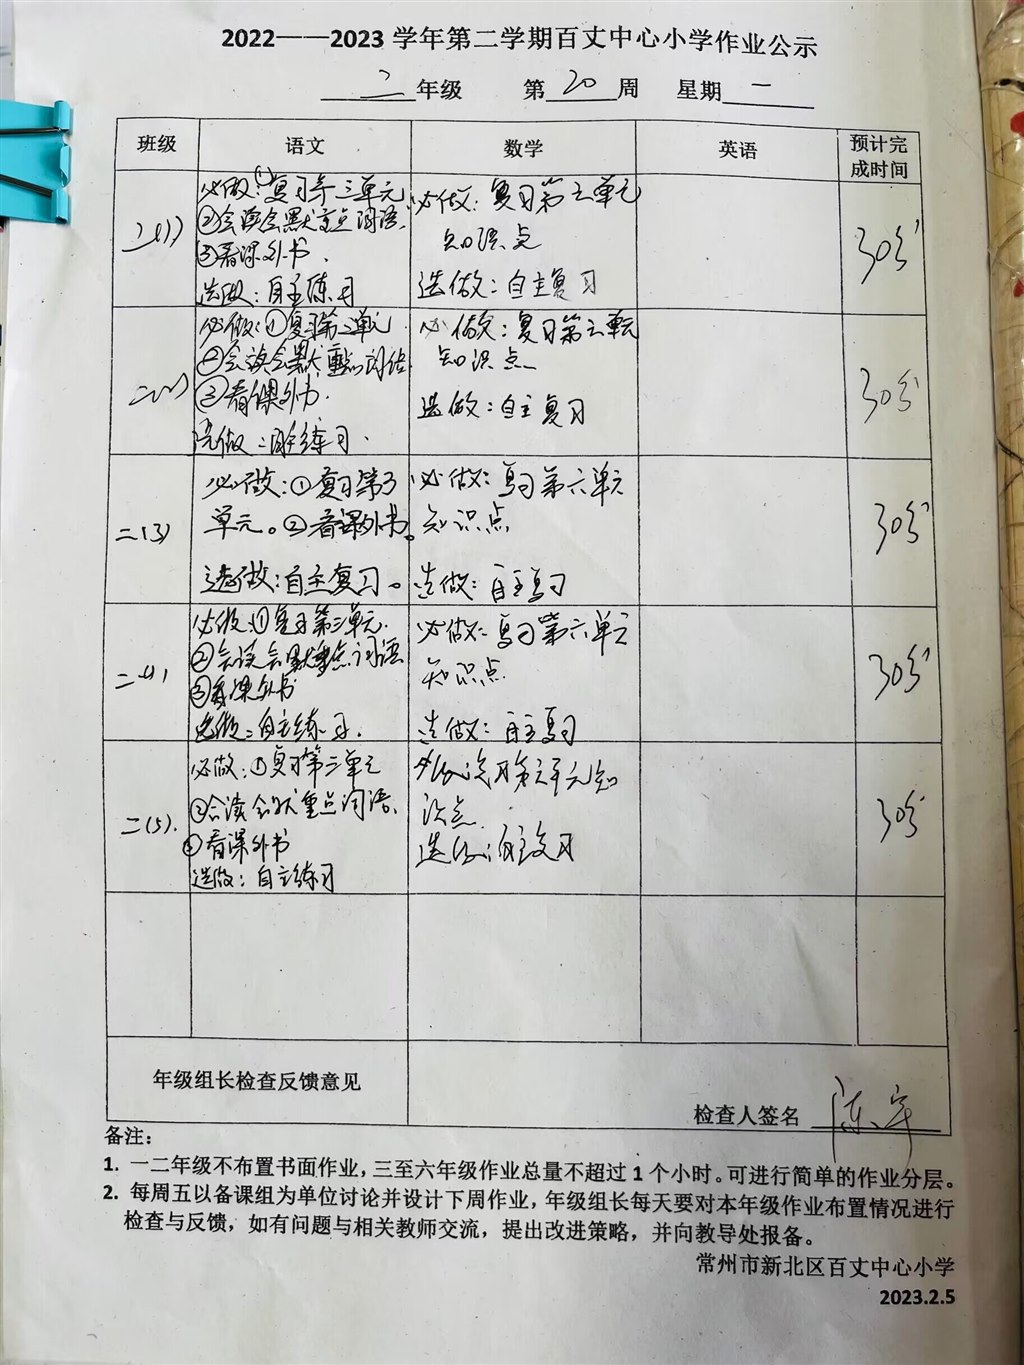 2022——2023 学年第二学期百丈中心小学作业公示
二 年级 第 20 周 星期 一
班级 语文 数学 英语 预计完成时间
二(1)
必做:①复习第三单元
②会读会默重点词语.
③看课外书.
选做:自主练习
必做:复习第五单元
知识点
选做:自主复习
30分
二(2)
必做:①复习第三单元
②会读会默重点词语
③看课外书.
选做:自主练习.
必做:复习第五单元
知识点
选做:自主复习
30分
二(3)
必做:①复习第3
单元。②看课外书。
选做:自主复习。
必做:复习第六单元
知识点
选做:自主复习
30分
二(4)
必做:①复习第三单元.
②会读会默重点词语
③看课外书
选做:自主练习.
必做:复习第六单元
知识点
选做:自主复习
30分
二(5).
必做:①复习第三单元
②会读会默重点词语.
③看课外书
选做:自主练习
必做:复习第六单元知
识点
选做:自主复习
30分
年级组长检查反馈意见
检查人签名 陈
备注:
1. 一二年级不布置书面作业,三至六年级作业总量不超过 1 个小时。可进行简单的作业分层。
2. 每周五以备课组为单位讨论并设计下周作业,年级组长每天要对本年级作业布置情况进行
检查与反馈,如有问题与相关教师交流,提出改进策略,并向教导处报备。
常州市新北区百丈中心小学
2023.2.5